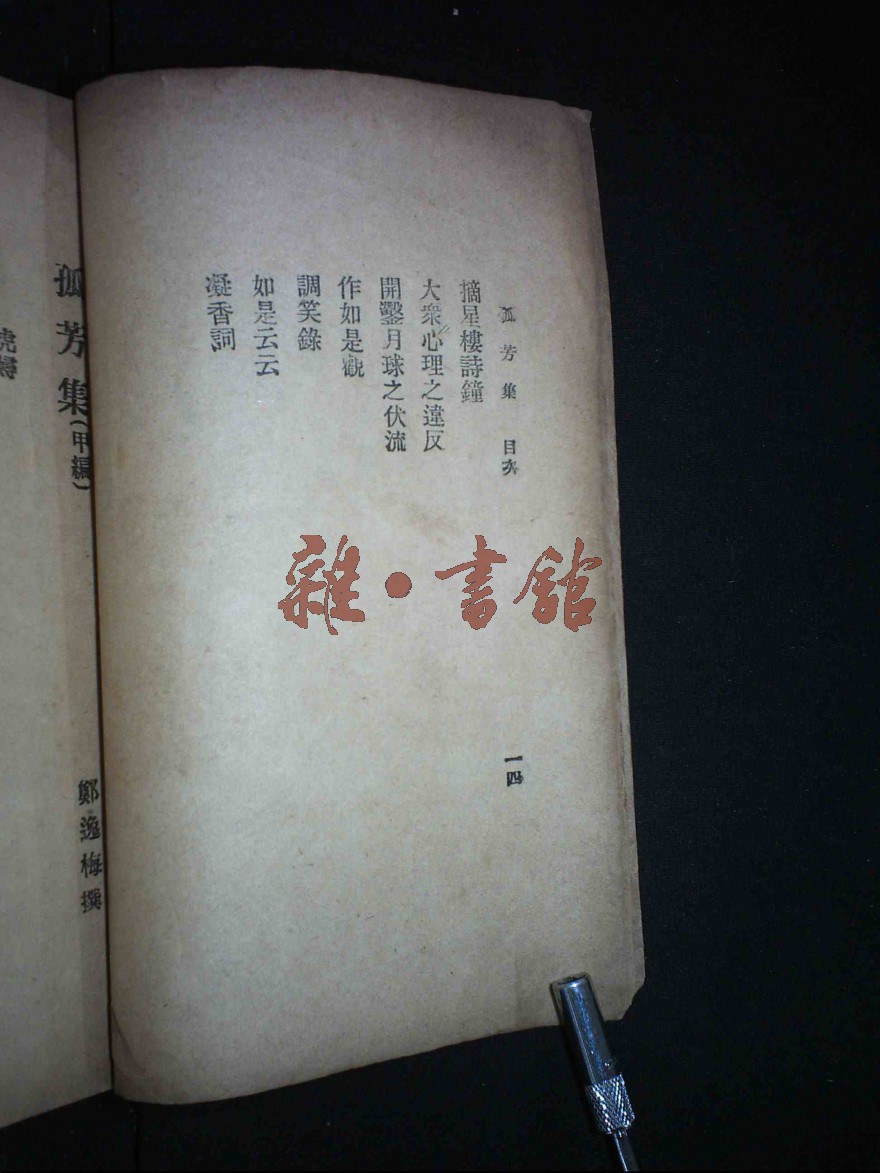 孤芳集 目次
摘星樓詩鐘
大衆心理之違反
開鑿月球之伏流
作如是觀
調笑錄
如是云云
凝香詞
一四
雜·書館
孤芳集(甲編)
鄭逸梅撰